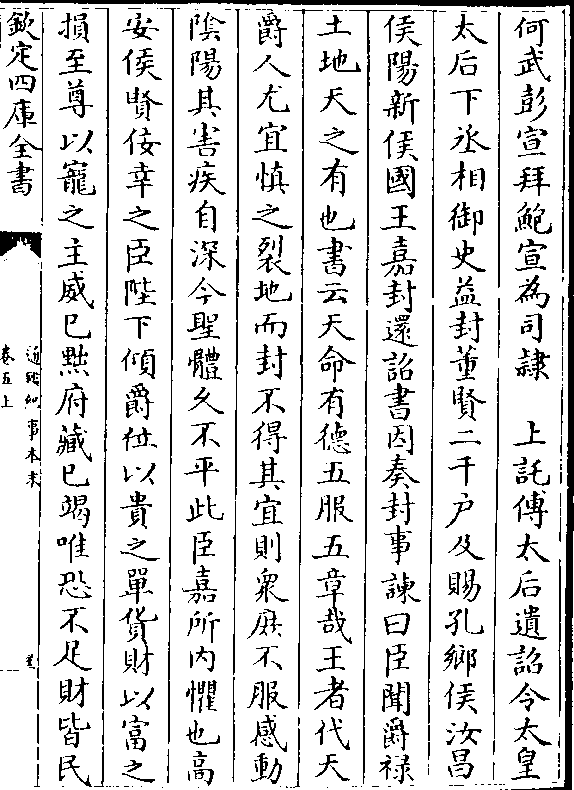 何武彭宣拜鮑宣為司隷　上託傅太后遺詔令太皇
太后下丞相御史益封董賢二千户及賜孔鄉侯汝昌
侯陽新侯國王嘉封還詔書因奏封事諫曰臣聞爵禄
土地天之有也書云天命有德五服五章哉王者代天
爵人尤宜慎之裂地而封不得其宜則衆庶不服感動
陰陽其害疾自深今聖體久不平此臣嘉所内懼也高
安侯賢佞幸之臣陛下傾爵位以貴之單貨財以富之
損至尊以寵之主威已黜府藏已竭唯恐不足財皆民
欽定四庫全書
通鑑紀事本末
卷五上